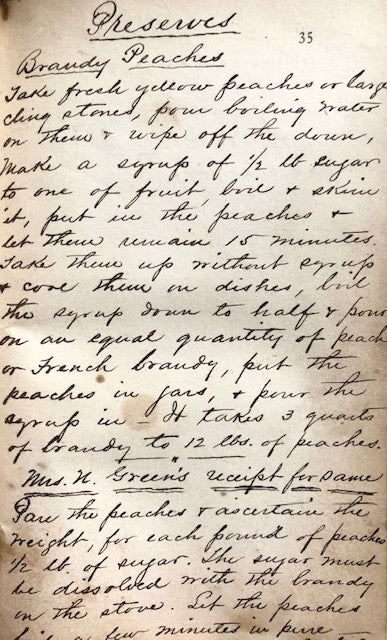 Preserves
35
Brandy Peaches
Take fresh yellow peaches or large
cling stones, pour boiling water
on them & wipe off the down,
Make a syrup of 1/2 lb sugar
to one of fruit, boil & skim
it, put in the peaches &
let them remain 15 minutes.
Take them up without syrup
& cool them on dishes, boil
the syrup down to half & pour
on an equal quantity of peach
or French brandy, put the
peaches in jars, & pour the
syrup in - It takes 3 quarts
of brandy to 12 lbs. of peaches.
Mrs. N. Green's receipt for same
Pare the peaches & ascertain the
weight, for each pound of peaches
1/2 lb of sugar. The sugar must
be dissolved with the brandy
on the stove. Let the peaches
a few minutes in pure